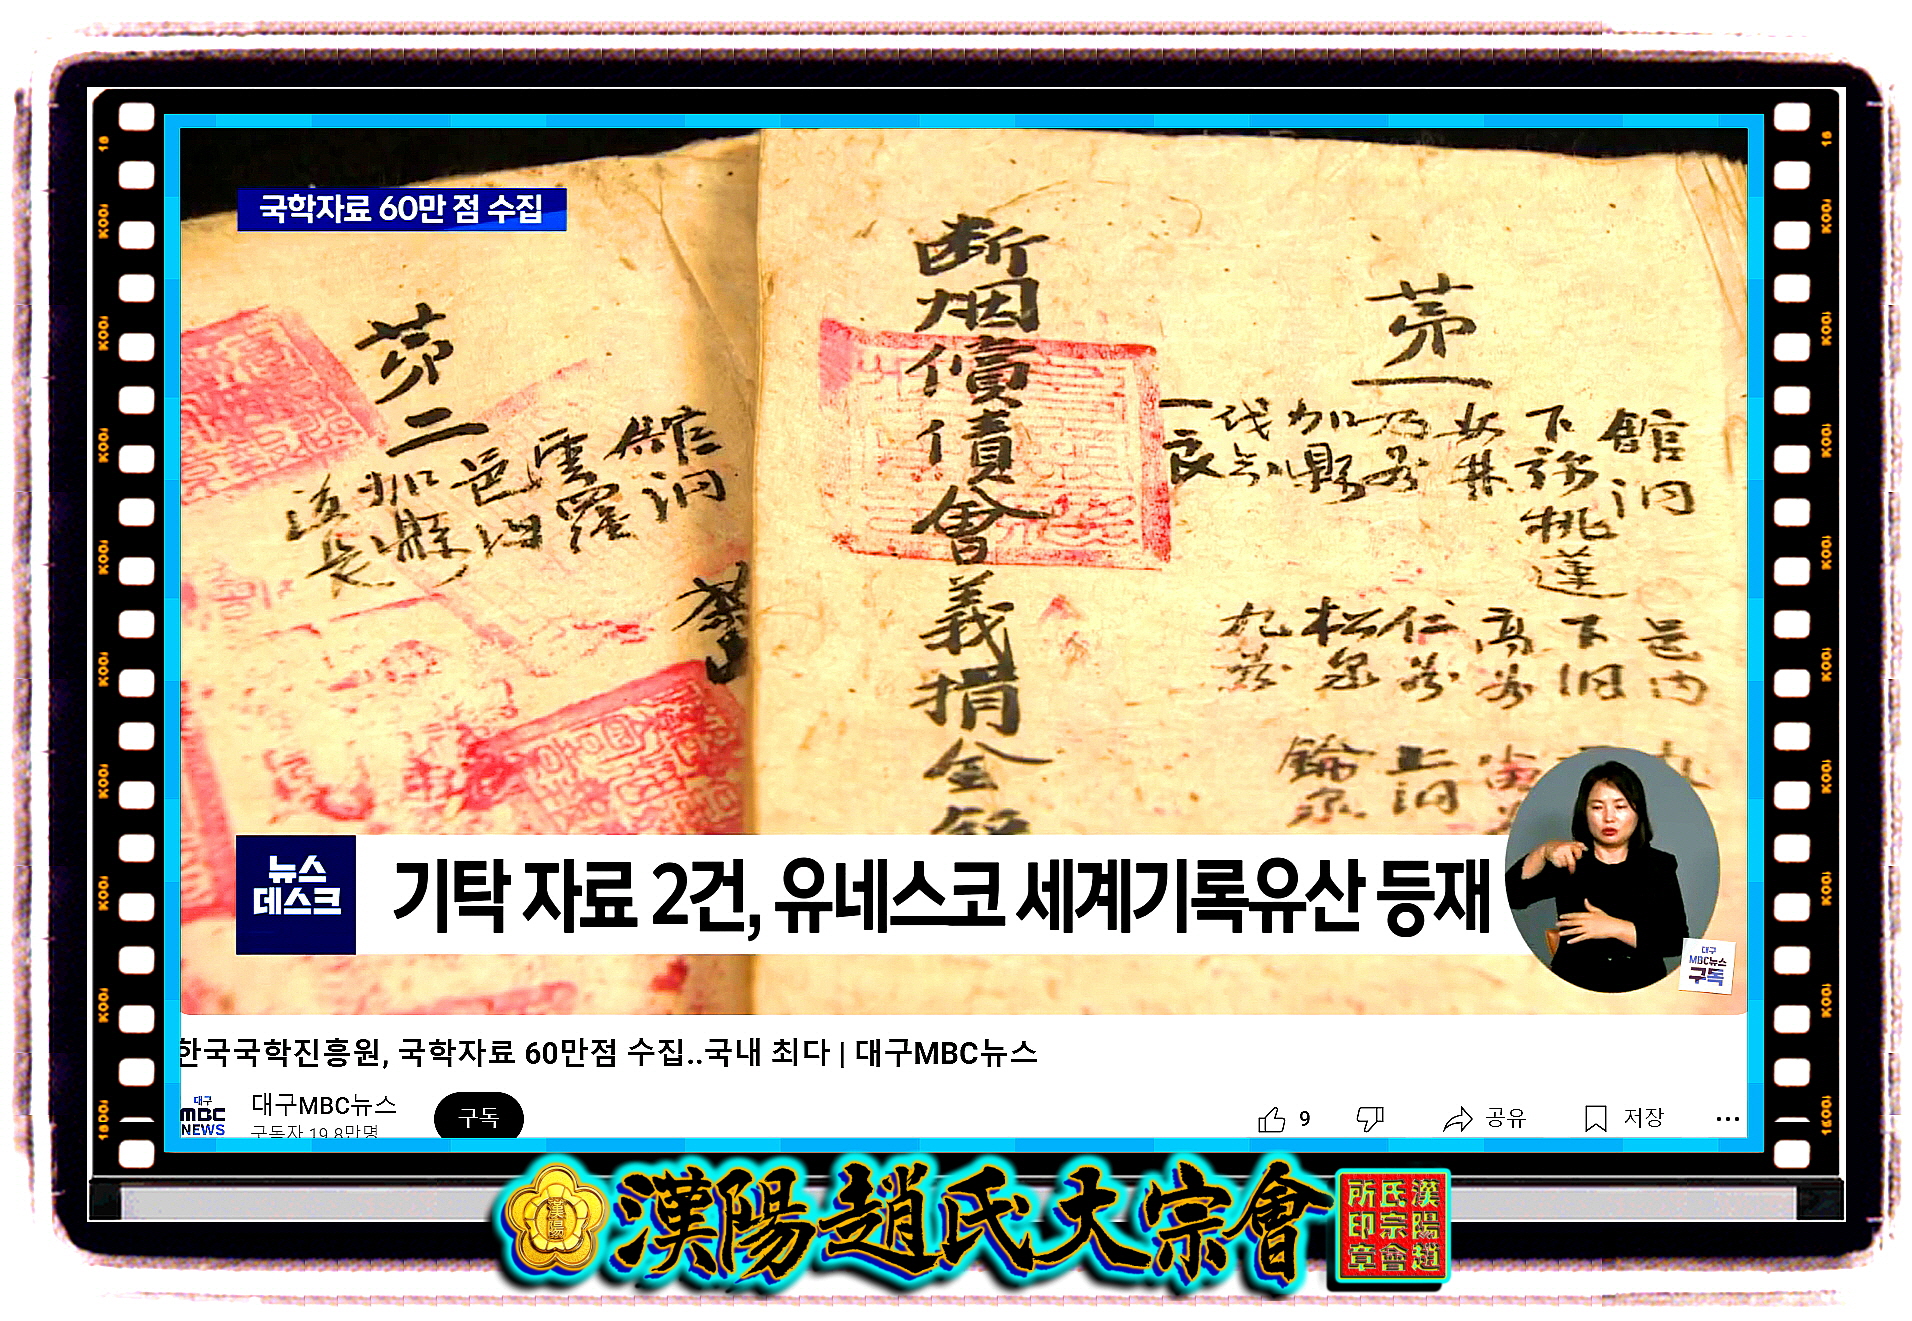 국학자료 60만 점 수집
断烟償債會義捐金
第一
館洞
下弥桃蓮
加縣
一良
邑内
下旧
高
仁
松
九
上洞
第二
館洞
雲羅
邑
加縣
뉴스
데스크
기탁 자료 2건, 유네스코 세계기록유산 등재
대구
MBC뉴스
구독
한국국학진흥원, 국학자료 60만점 수집..국내 최다 | 대구MBC뉴스
대구
MBC
NEWS
대구MBC뉴스
구독자 19.8만명
구독
9
공유
저장
漢陽
漢陽趙氏大宗會
漢陽趙
氏宗會
所印章